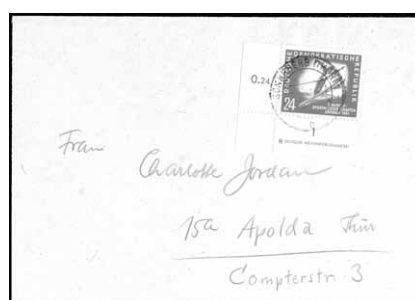 0.24
DEUTSCHE DEMOKRATISCHE REPUBLIK
24
1
Frau
Charlotte Jordan
15a Apolda Thür
Compterstr. 3